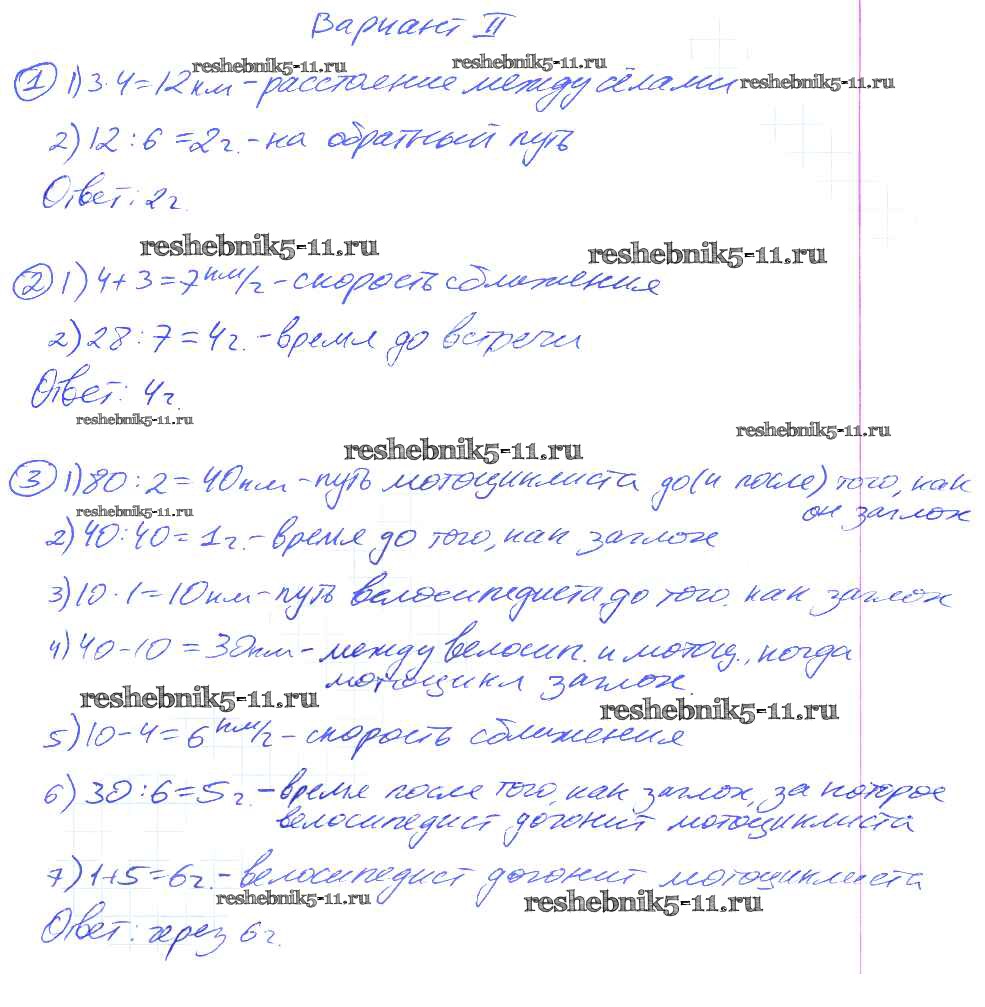 Вариант II
reshebnik5-11.ru reshebnik5-11.ru
① 1) 3·4=12км – расстояние между сёлами reshebnik5-11.ru
2) 12:6=2ч. – на обратный путь
Ответ: 2ч.
reshebnik5-11.ru reshebnik5-11.ru
② 1) 4+3=7км/ч – скорость сближения
2) 28:7=4ч. – время до встречи
Ответ: 4ч.
reshebnik5-11.ru reshebnik5-11.ru
reshebnik5-11.ru
③ 1) 80:2=40км – путь мотоциклиста до (и после) того, как
он заглох
reshebnik5-11.ru
2) 40:40=1ч. – время до того, как заглох
3) 10·1=10км – путь велосипедиста до того, как заглох
4) 40-10=30км – между велосип. и мотоц., когда
мотоцикл заглох.
reshebnik5-11.ru reshebnik5-11.ru
5) 10-4=6км/ч – скорость сближения
6) 30:6=5ч. – время после того, как заглох, за которое
велосипедист догонит мотоциклиста
7) 1+5=6ч. – велосипедист догонит мотоциклиста
reshebnik5-11.ru reshebnik5-11.ru
Ответ: через 6ч.